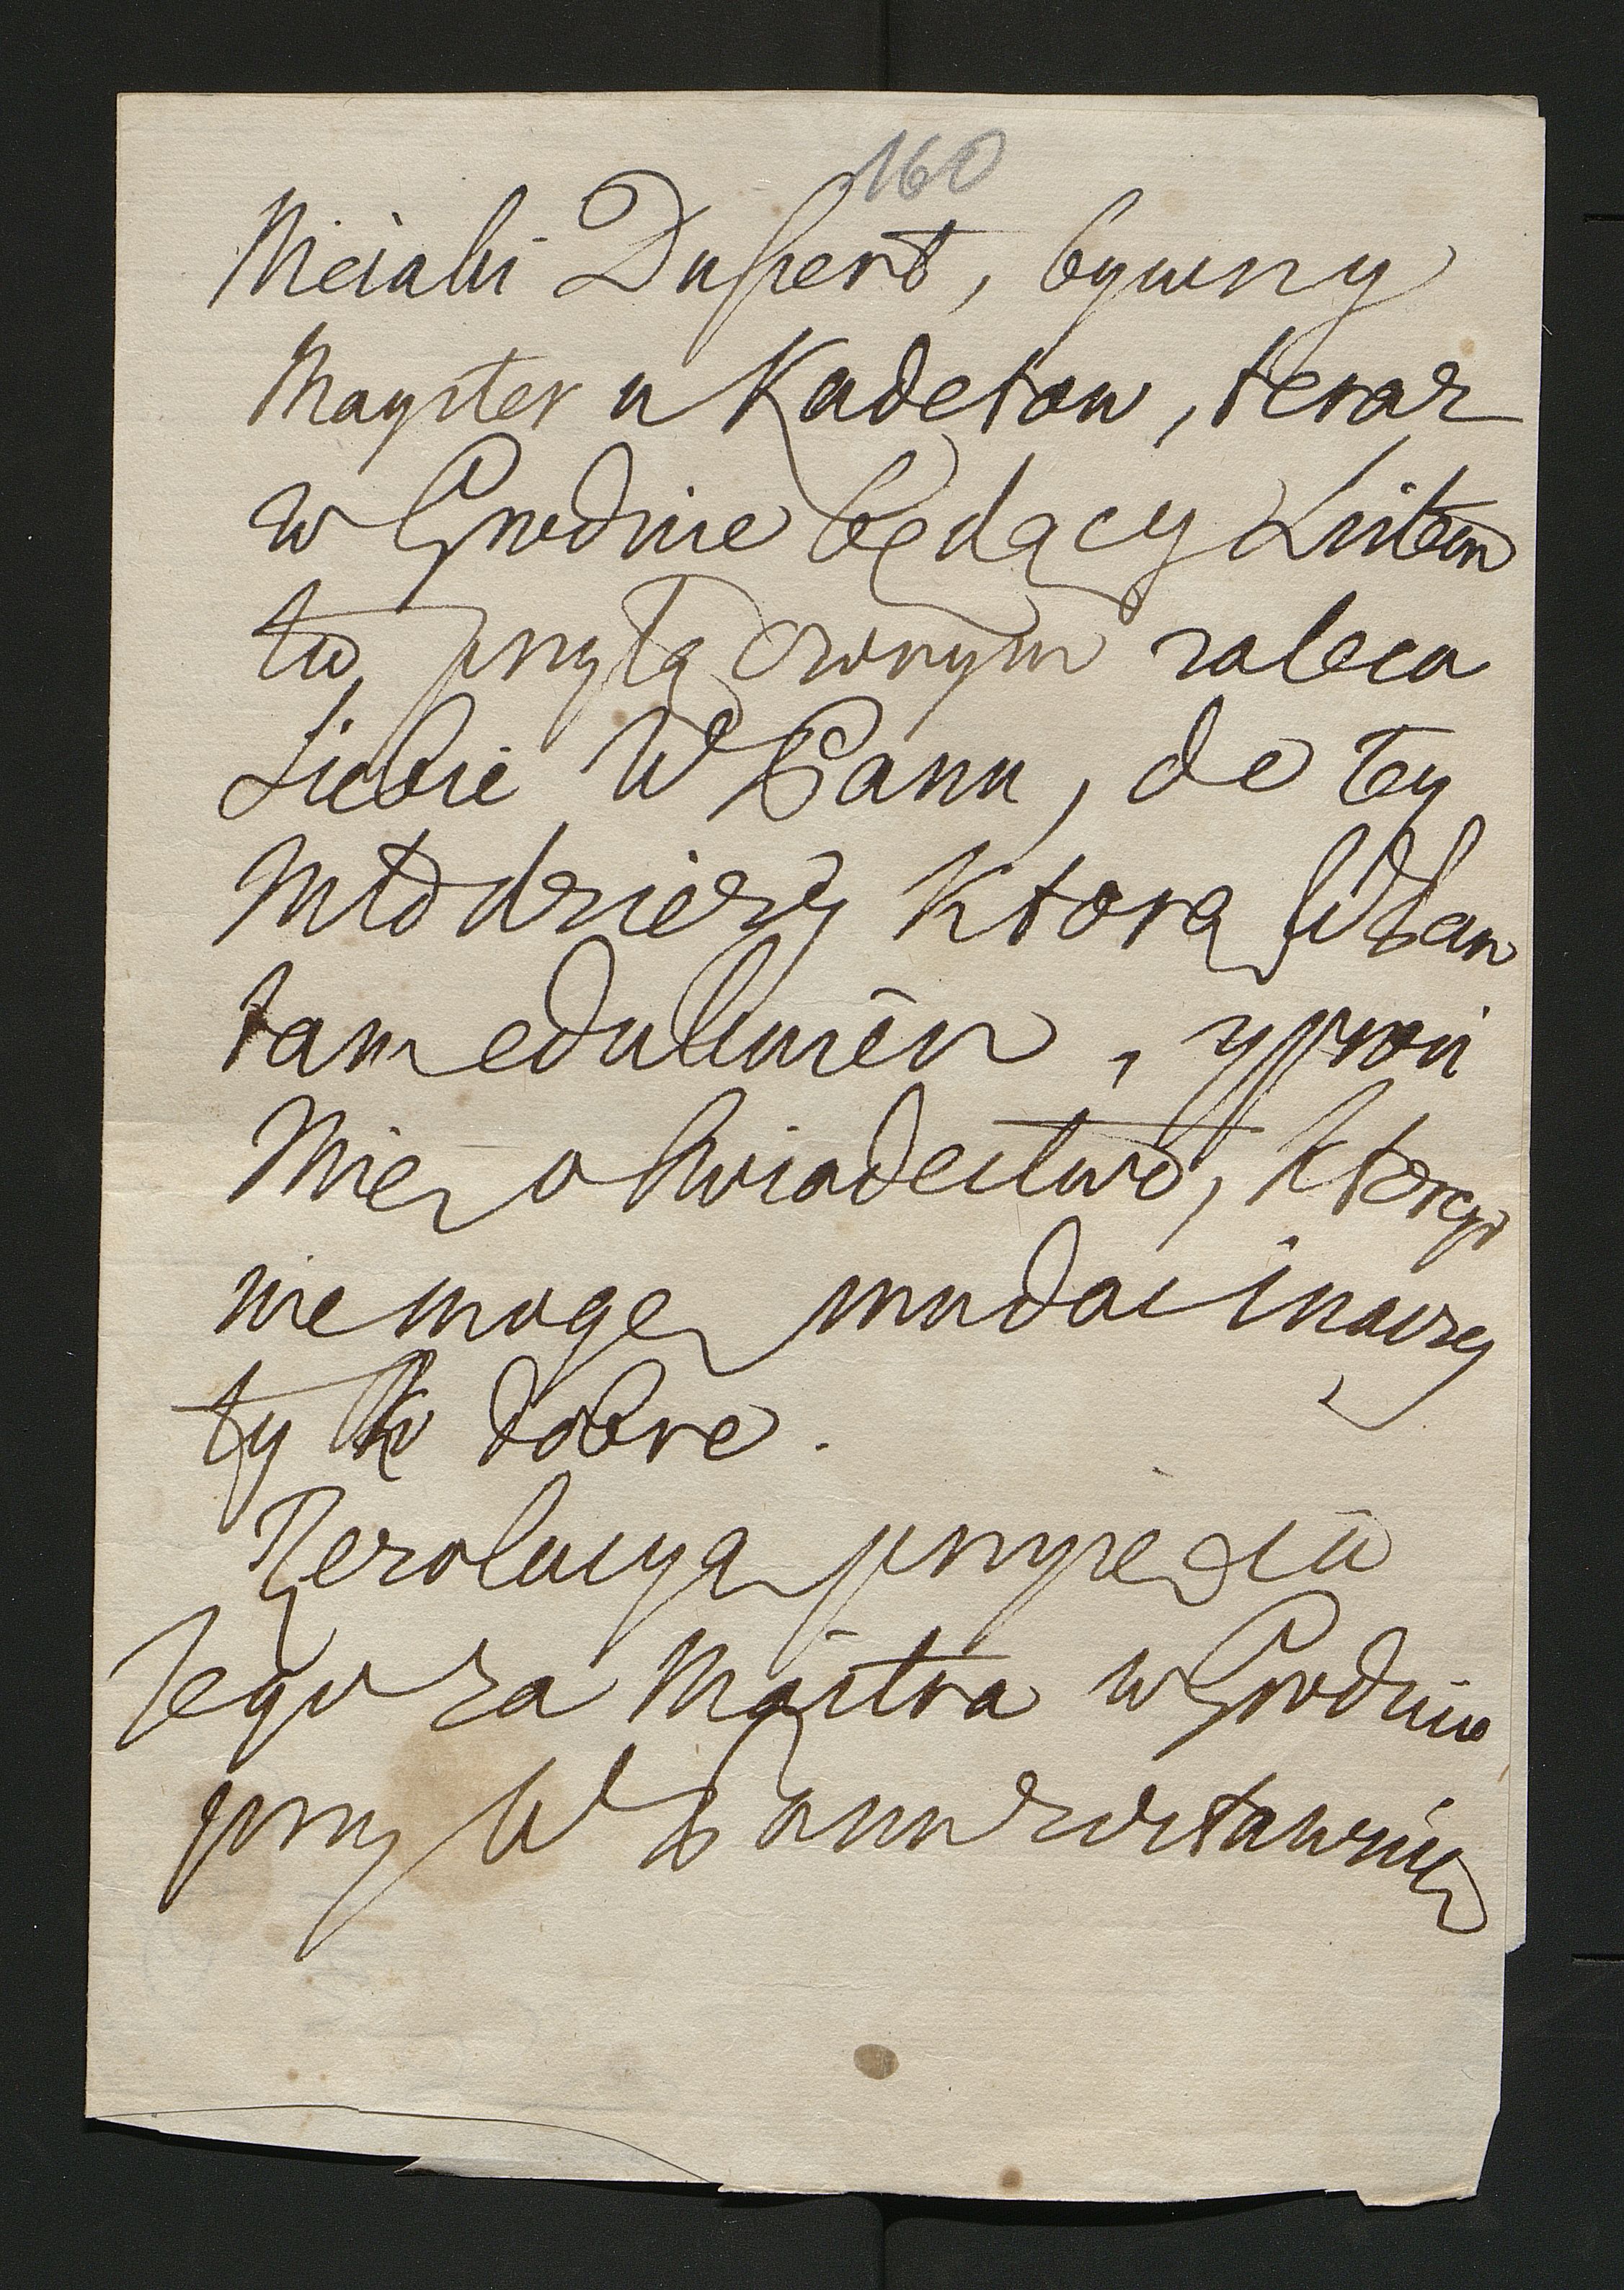 160
Nieiaki Dupert, bywny
Mayster u Kadetow, teraz
w Grodnie będący Listem
tu przyłączonym zaleca
Siebie W Panu, do tey
Młodzieży ktorą WPan
tam edukuien, y prosi
Mię o swiadectwo, ktorego
nie mogę mu dac inaczey
tylko dobre.
Rezolucyą przyięcia
Jego za Majstra w Grodnie
przy W Panu zostawuię